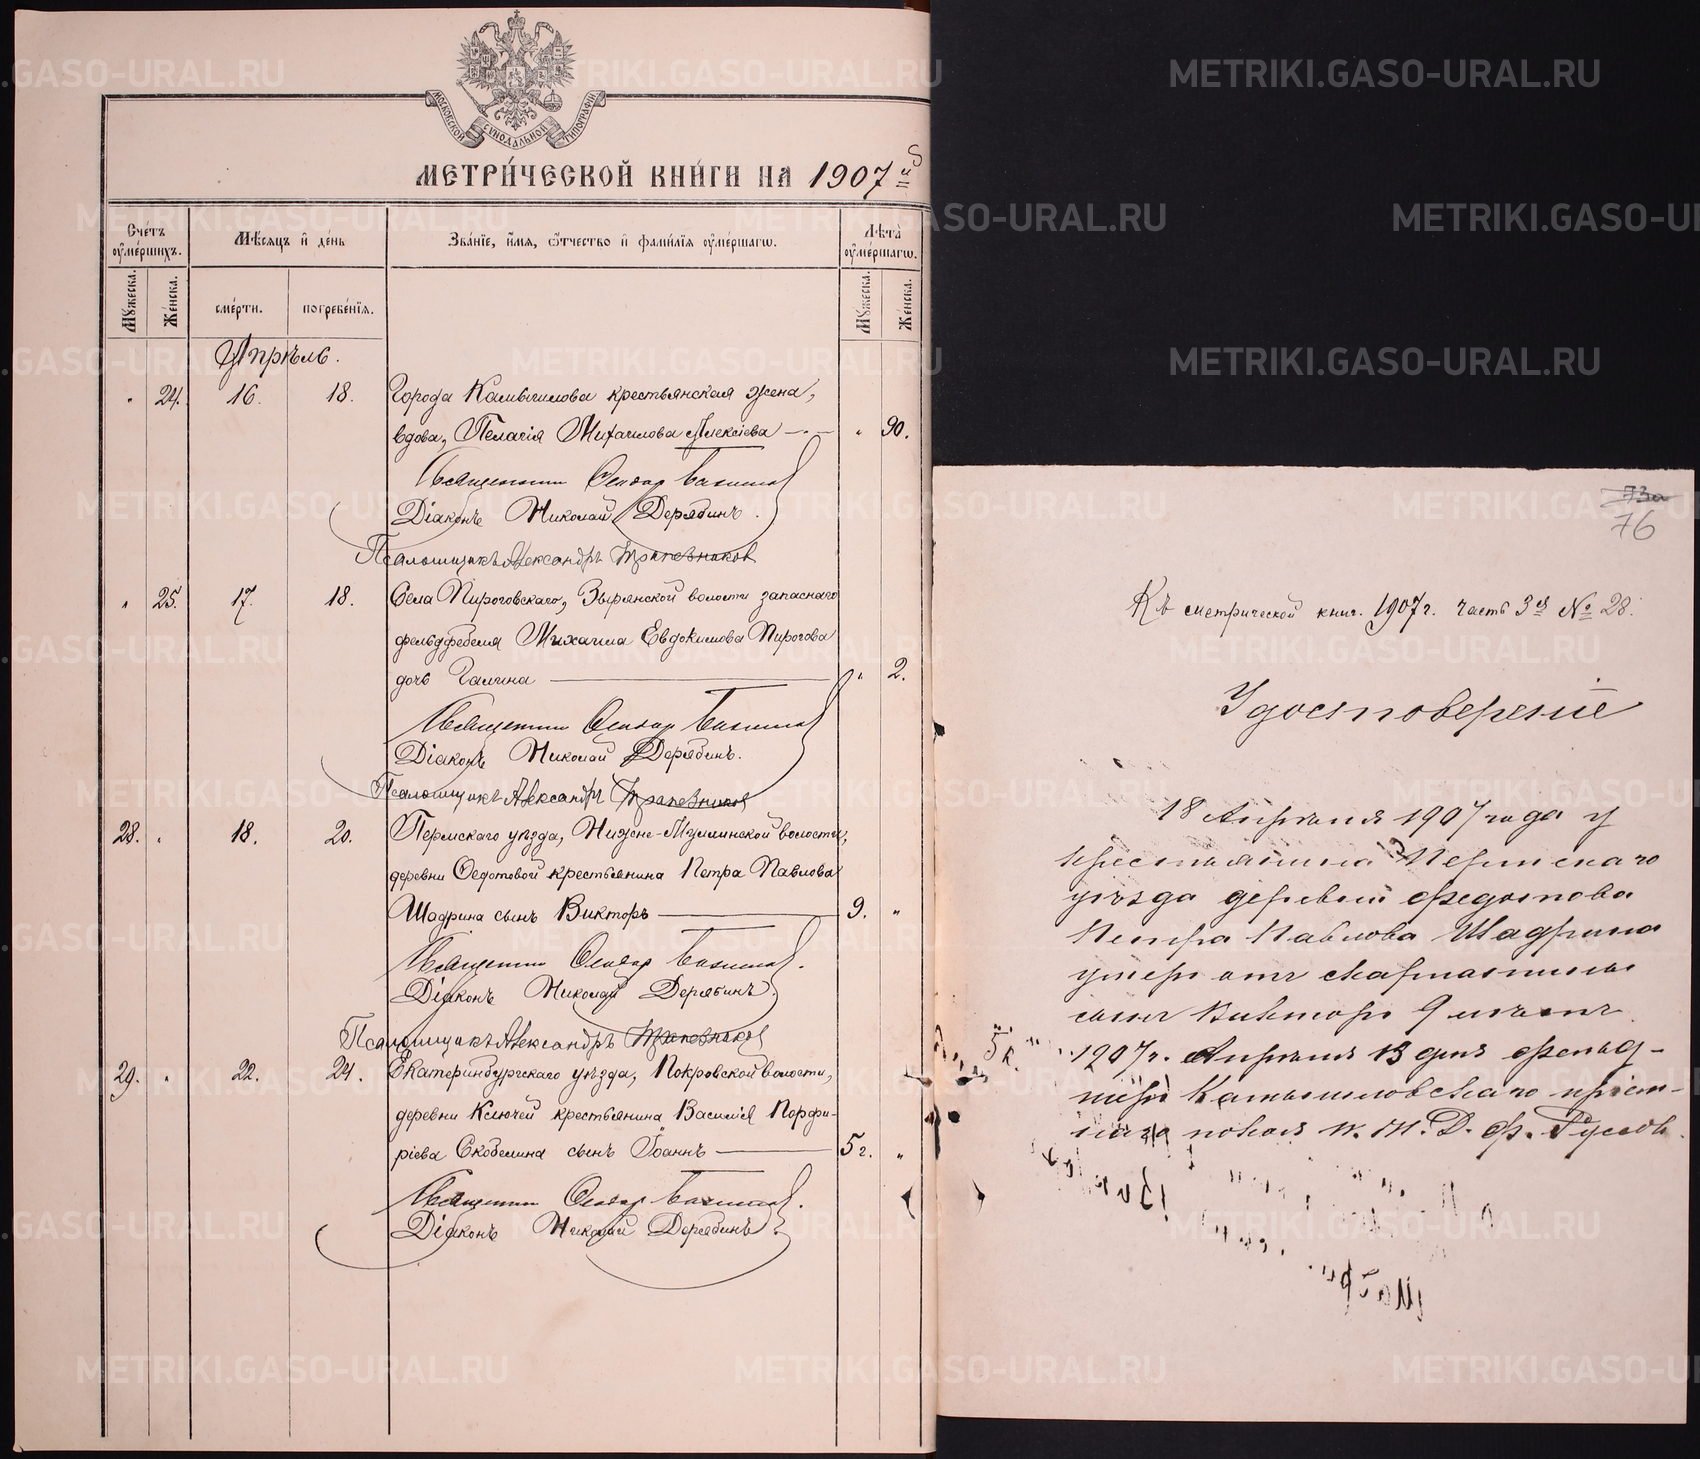 МОСКОВСКОЙ СѴНОДАЛЬНОЙ ТИПОГРАФІИ
МЕТРИ́ЧЕСКОЙ КНИ́ГИ НА 1907 й
Сче́тъ оу҆ме́ршихъ.
Мѣ́сяцъ и҆ де́нь
Зва́нїе, и҆́мя, ѻ҆́тчество и҆ фами́лїя оу҆ме́ршагѡ.
Лѣта̀ оу҆ме́ршагѡ.
Мꙋ́жеска.
Же́нска.
сме́рти.
погребе́нїя.
Мꙋ́жеска.
Же́нска.
Апрѣль.
" 24. 16. 18. Города Камышлова крестьянская жена,
вдова, Пелагія Михаилова Алексіева " 90.
Священникъ
Діаконъ Николай Дерябинъ.
Псаломщикъ Александръ Трапезниковъ
" 25. 17. 18. Села Пироговскаго, Зырянской волости запаснаго
фельдфебеля Михаила Евдокимова Пирогова
дочь Галина " 2.
Священникъ
Діаконъ Николай Дерябинъ.
Псаломщикъ Александръ Трапезниковъ
28. " 18. 20. Пермскаго уѣзда, Нижне-Муллинской волости,
деревни Федотовой крестьянина Петра Павлова
Шадрина сынъ Викторъ 9. "
Священникъ
Діаконъ Николай Дерябинъ.
Псаломщикъ Александръ Трапезниковъ
29. " 22. 24. Екатеринбургскаго уѣзда, Покровской волости,
деревни Ключей крестьянина Василія Порфи-
ріева Скобелина сынъ Іоаннъ 5 г. "
Священникъ
Діаконъ Николай Дерябинъ.
73а
76
Къ метрической книг. 1907 г. часть 3я № 28.
Удостоверение
18 Апреля 1907 года у
крестьянина Пермскаго
уѣзда деревни Федотова
Петра Павлова Шадрина
умеръ отъ скарлатины
сынъ Викторъ 9 лѣтъ
1907 г. Апреля 13 дня Фельд-
шеръ Камышловскаго
5 к.